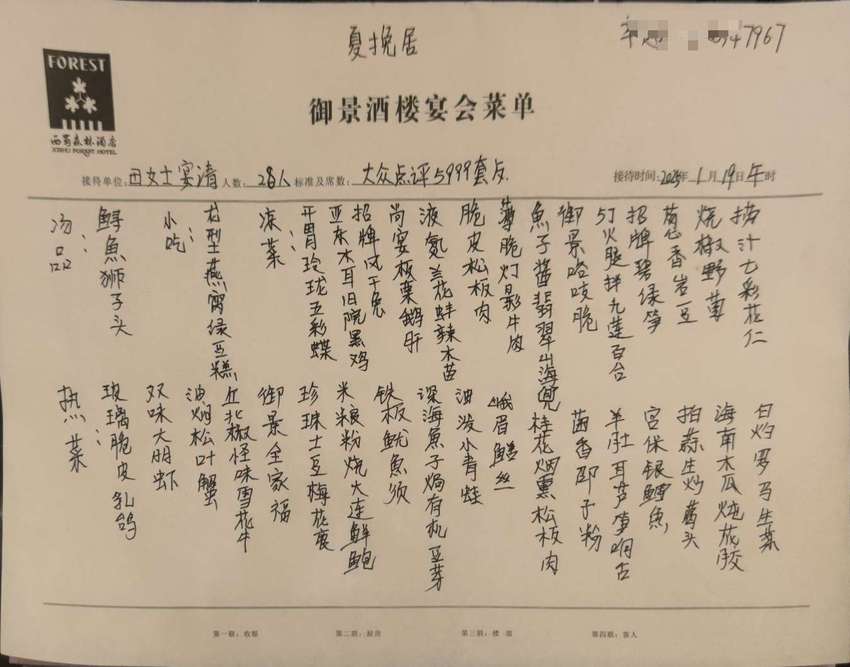 夏挽居
7967
FOREST
西蜀森林酒店
XISHU FOREST HOTEL
御景酒楼宴会菜单
接待单位: 田女士宴请 人数: 28人 标准及席数: 大众点评5999套餐 接待时间: 2025年1月19日午时
汤品:
鲟魚狮子头
小吃:
古型燕窝绿豆糕
凉菜:
开胃玲珑五彩蝶
亚东木耳旧院黑鸡
招牌风干兔
尚宴板栗鹅肝
液氮兰花蚌辣木苗
脆皮松板肉
薄脆灯影牛肉
魚子酱翡翠山海兜
御景咯吱脆
5J火腿拌九莲百合
招牌碧绿笋
葱香岩豆
烧椒野菌
捞汁七彩花仁
热菜:
玻璃脆皮乳鸽
双味大明虾
油焖松叶蟹
丘北椒怪味雪花牛
御景全家福
珍珠土豆梅花裹
米粮粉烧大连鲜鲍
铁板鱿魚须
深海魚子焗有机豆芽
油泼小青蛙
峨眉鳝丝
桂花烟熏松板肉
茴香邵子粉
羊肚耳芦笋响古
宫保银鳕魚
拍蒜生炒茜头
海南木瓜炖花胶
白灼罗马生菜
第一联: 收银
第二联: 厨房
第三联: 楼面
第四联: 客人